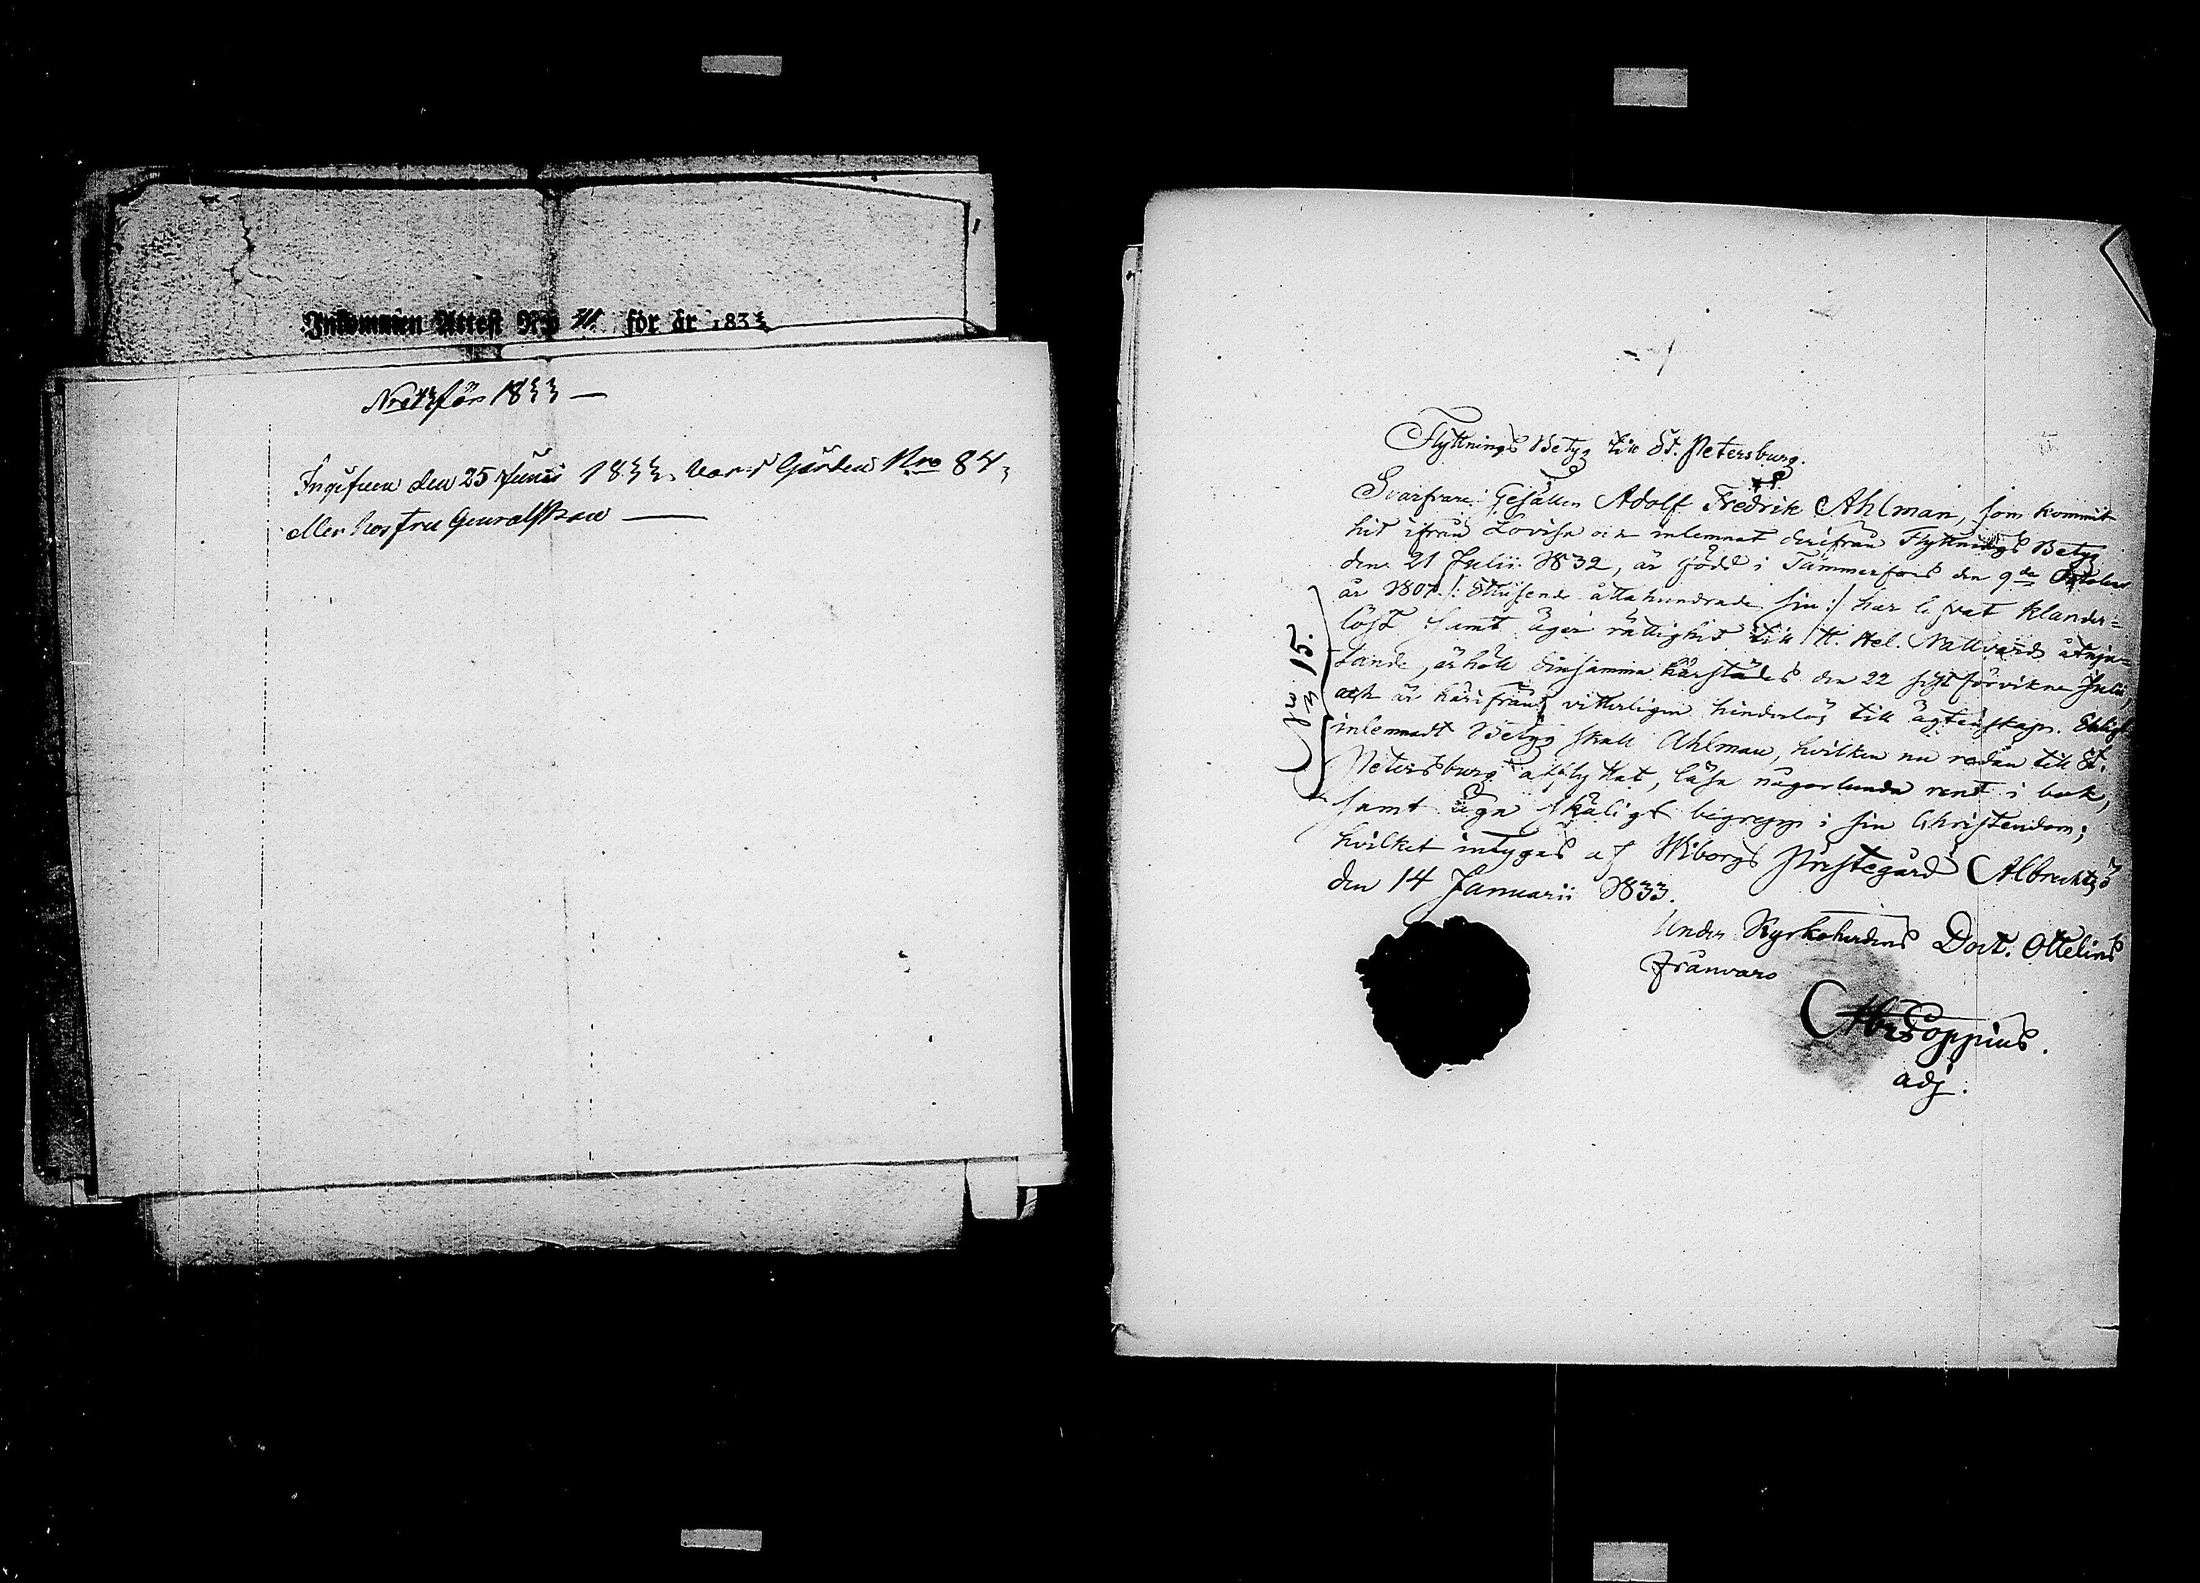 Inkommen Attest No för år 1833
Nro för 1833 —
Ingifven den 25 Junii 1833. bor i Gården Nro 84,
eller hos fru Generalskan —
Flyttnings Betyg till St. Petersburg.
Svarfvare Gesällen Adolf Fredrik Ahlman, som kommit
hit ifrån Lovisa och inlemnat derifrån Flyttnings Betyg
den 21 Julii 1832, är född i Tammerfors den 9de Octobr
år 1807 /: Ettusende åttahundrade sju :/ har lefvat klander=
löst samt äger rättighet till H. Hel. Nattvards åtnju=
tande, erhöll densamma härstädes den 22 sist förvikne Julii,
och är härifrån vitterligen hinderlös till ägtenskap. Enligt
inlemnadt Betyg skall Ahlman, hvilken nu redan till St.
Petersburg afflyttat, läsa någorlunda rent i bok,
samt äga skäligt begrepp i sin Christendom;
hvilket intygas af Wiborgs Prestegård Albrechtsö
den 14 Januarii 1833.
Under Kyrkoherdens Doct. Ottelins
frånvaro
Abr Poppius.
adj.
N 15.